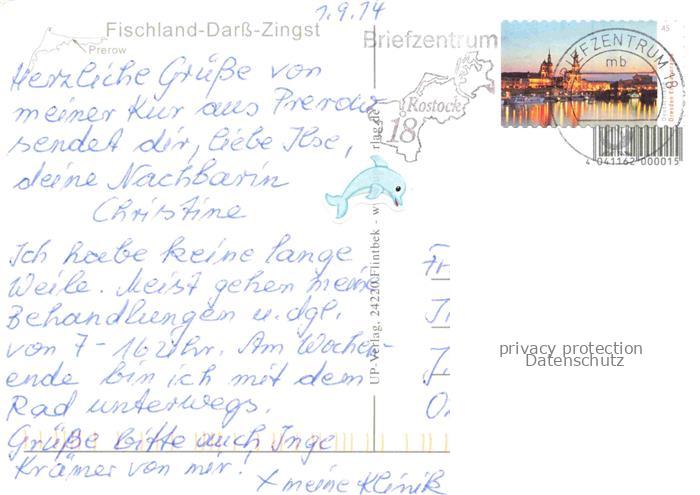 1.9.14
Fischland-Darß-Zingst
Prerow
Herzliche Grüße von
meiner Kur aus Prerow
sendet dir, liebe Ilse,
deine Nachbarin
Christine
Ich habe keine lange
Weile. Meist gehen meine
Behandlungen u. dgl.
von 7-16 Uhr. Am Wochen-
ende bin ich mit dem
Rad unterwegs.
Grüße bitte auch Inge
Krämer von mir!
x meine Klinik
UP-Verlag, 24220 Flintbek - w
rlag.de
Briefzentrum
Rostock
18
BRIEFZENTRUM 18
mb
45
Dresden
4 041162 000015
privacy protection
Datenschutz